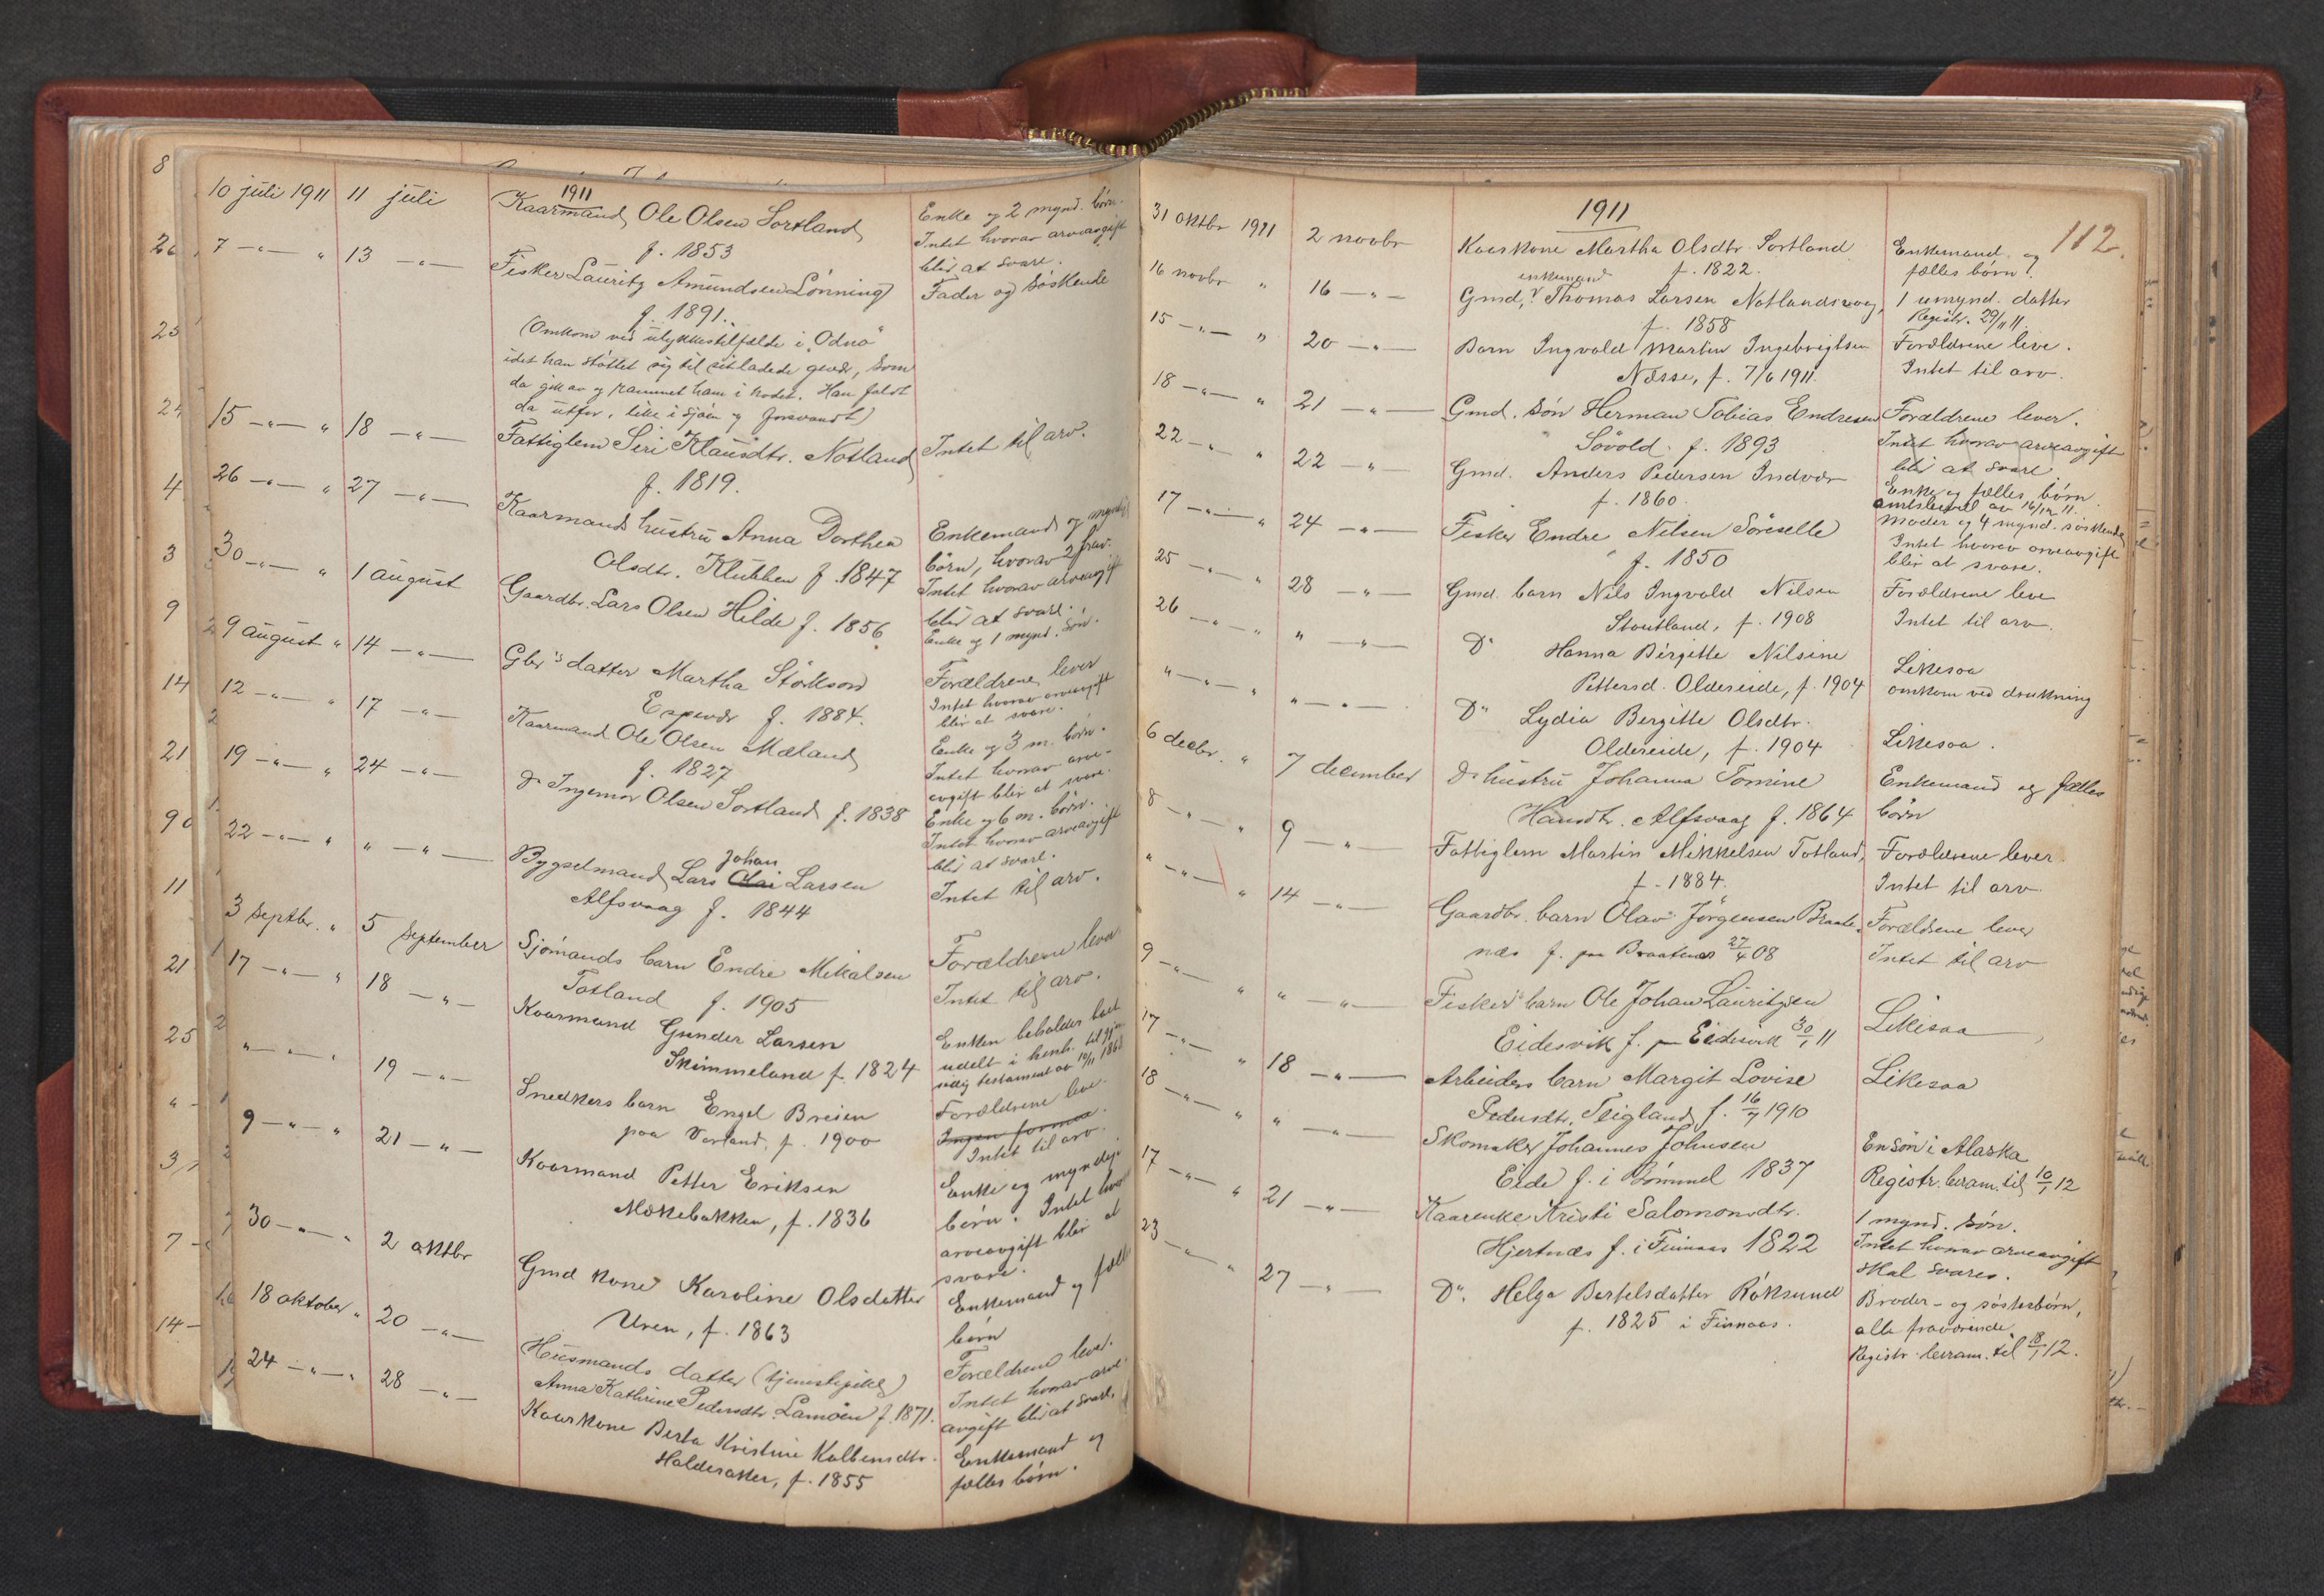 1911
10 juli 1911 11 juli Kaarmand Ole Olsen Sortland Enke og 2 mynd. børn.
f. 1853 Intet hvorav arveavgift
blir at svare.
7 — " — " 13 — " — Fisker Lauritz Amundsen Lønning Fader og søskende
f. 1891.
(Omkom ved ulykkestilfælde i "Odnø"
idet han støttet sig til sit ladede gevær, som
da gik av og rammet ham i hodet. Han faldt
da utfor, like i sjøen og forsvandt)
15 — " — " 18 — " — Fattiglem Siri Klausdtr. Notland Intet til arv.
f. 1819.
26 — " — " 27 — " — Kaarmands hustru Anna Dorthea Enkemand og mynd.
Olsdtr. Klubben f. 1847 børn, hvorav 2 frav.
Intet hvorav arveavgift
blir at svare.
30 — " — " 1 august Gaardbr. Lars Olsen Hilde f. 1856 Enke og 1 mynd. søn.
9 august " 14 — " — Gbr's datter Martha Størkson Forældrene lever
Espevær f. 1884. Intet hvorav arveavgift
blir at svare.
12 — " — " 17 — " — Kaarmand Ole Olsen Mæland Enke og 3 m. børn.
f. 1827 Intet hvorav arve-
avgift blir at svare.
19 — " — " 24 — " — Do Ingemor Olsen Sortland f. 1838 Enke og 6 m. børn.
Intet hvorav arveavgift
blir at svare.
22 — " — " " — " — Bygselmand Lars Johan Larsen Intet til arv.
Alfsvaag f. 1844
3 septbr. " 5 september Sjømands barn Endre Mikalsen Forældrene lever
Totland f. 1905 Intet til arv.
17 — " — " 18 — " — Kaarmand Gunder Larsen Enken beholder boet
Skimmeland f. 1824 udelt i henh. til gjen-
sidig testament av 10/11 1868
" — " — " 19 — " — Snedkers barn Engel Breien Forældrene lever.
paa Vorland, f. 1900 Ingen formue
Intet til arv.
9 — " — " 21 — " — Kaarmand Petter Eriksen Enke og myndige
Mokebakken, f. 1836 børn. Intet hvorav
arveavgift blir at
svare.
30 — " — " 2 oktbr Gmd kone Karoline Olsdatter Enkemand og fælles
Uren, f. 1863 børn
18 oktober " 20 — " — Husmands datter (tjenestepike) Forældrene lever.
Anna Kathrine Pedersdtr. Lamøen f. 1871. Intet hvorav arve-
avgift blir at svare.
24 — " — " 28 — " — Kaarkone Berta Kristine Kolbensdtr. Enkemand og
Halderaker, f. 1855 fælles børn.
1911
112.
31 oktbr 1911 2 novbr Kaarkone Martha Olsdtr Sortland Enkemand og
f. 1822. fælles børn.
16 novbr " 16 — " — Gmd, enkemand Thomas Larsen Notlandsvaag, 1 umynd. datter
f. 1858 Registr. 29/11 11.
15 — " — " 20 — " — Barn Ingvald Martin Ingebrigtsen Forældrene leve.
Næsse, f. 7/6 1911. Intet til arv.
18 — " — " 21 — " — Gmd. søn Herman Tobias Endresen Forældrene lever.
Søvold. f. 1893 Intet hvorav arveavgift
blir at svare
22 — " — " 22 — " — Gmd. Anders Pedersen Indvær Enke og fælles børn
f. 1860. amtsbevil av 16/12 11.
17 — " — " 24 — " — Fisker Endre Nilsen Søreselle Moder og 4 mynd. søskende
f. 1850 Intet hvorav arveavgift
blir at svare.
25 — " — " 28 — " — Gmd. barn Nils Ingvald Nilsen Forældrene leve
Stoutland, f. 1908 Intet til arv.
26 — " — " " — " — Do Hanna Birgitte Nilsine Likesaa
Pettersd. Oldereide, f. 1904 omkom ved drukning
" — " — " " — " — Do Lydia Bergitte Olsdtr. Likesaa.
Oldereide, f. 1904
6 decbr. " 7 december Do hustru Johanna Tomine Enkemand og fælles
Hansdtr. Alfsvaag f. 1864 børn
8 — " — " 9 — " — Fattiglem Martin Mikkelsen Totland, Forældrene lever.
f. 1884. Intet til arv.
" — " — " 14 — " — Gaardbr. barn Olav Jørgensen Braate- Forældrene lever
næs f. paa Braatenæs 27/4 08 Intet til arv
9 — " — " " — " — Fisker's barn Ole Johan Lauritzsen Likesaa
Eidesvik f. paa Eidesvik 30/1 11
17 — " — " 18 — " — Arbeiders barn Margit Lovise Likesaa
Pedersdtr. Teigland f. 16/7 1910
18 — " — " " — " — Skomaker Johannes Johnsen En søn i Alaska
Eide f. i Bømmel 1837 Registr. beram. til 10/1 12
17 — " — " 21 — " — Kaarenke Kristi Salomonsdtr. 1 mynd. søn.
Hjertnæs f. i Finnaas 1822 Intet hvorav arveavgift
skal svares.
23 — " — " 27 — " — Do. Helga Bertelsdatter Røksund Broder- og søsterbørn,
f. 1825 i Finnaas. alle fraværende.
Registr. beram. til 18/1 12.